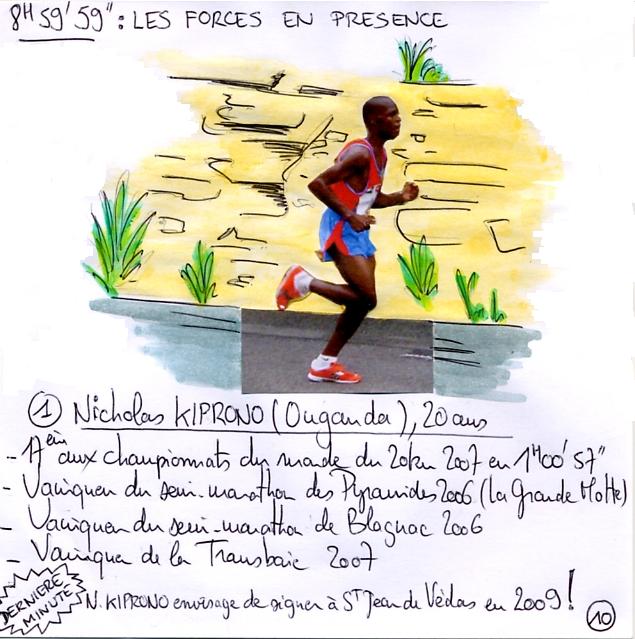 8H 59' 59'' : LES FORCES EN PRESENCE
① Nicholas KIPRONO (Ouganda), 20 ans
- 17èm aux championnats du monde du 20km 2007 en 1H00' 57''
- Vainqueur du semi-marathon des Pyramides 2006 (La Grande Motte)
- Vainqueur du semi-marathon de Blagnac 2006
- Vainqueur de la Transbaie 2007
DERNIERE MINUTE
N. KIPRONO envisage de signer à ST Jean de Védas en 2009 !
10